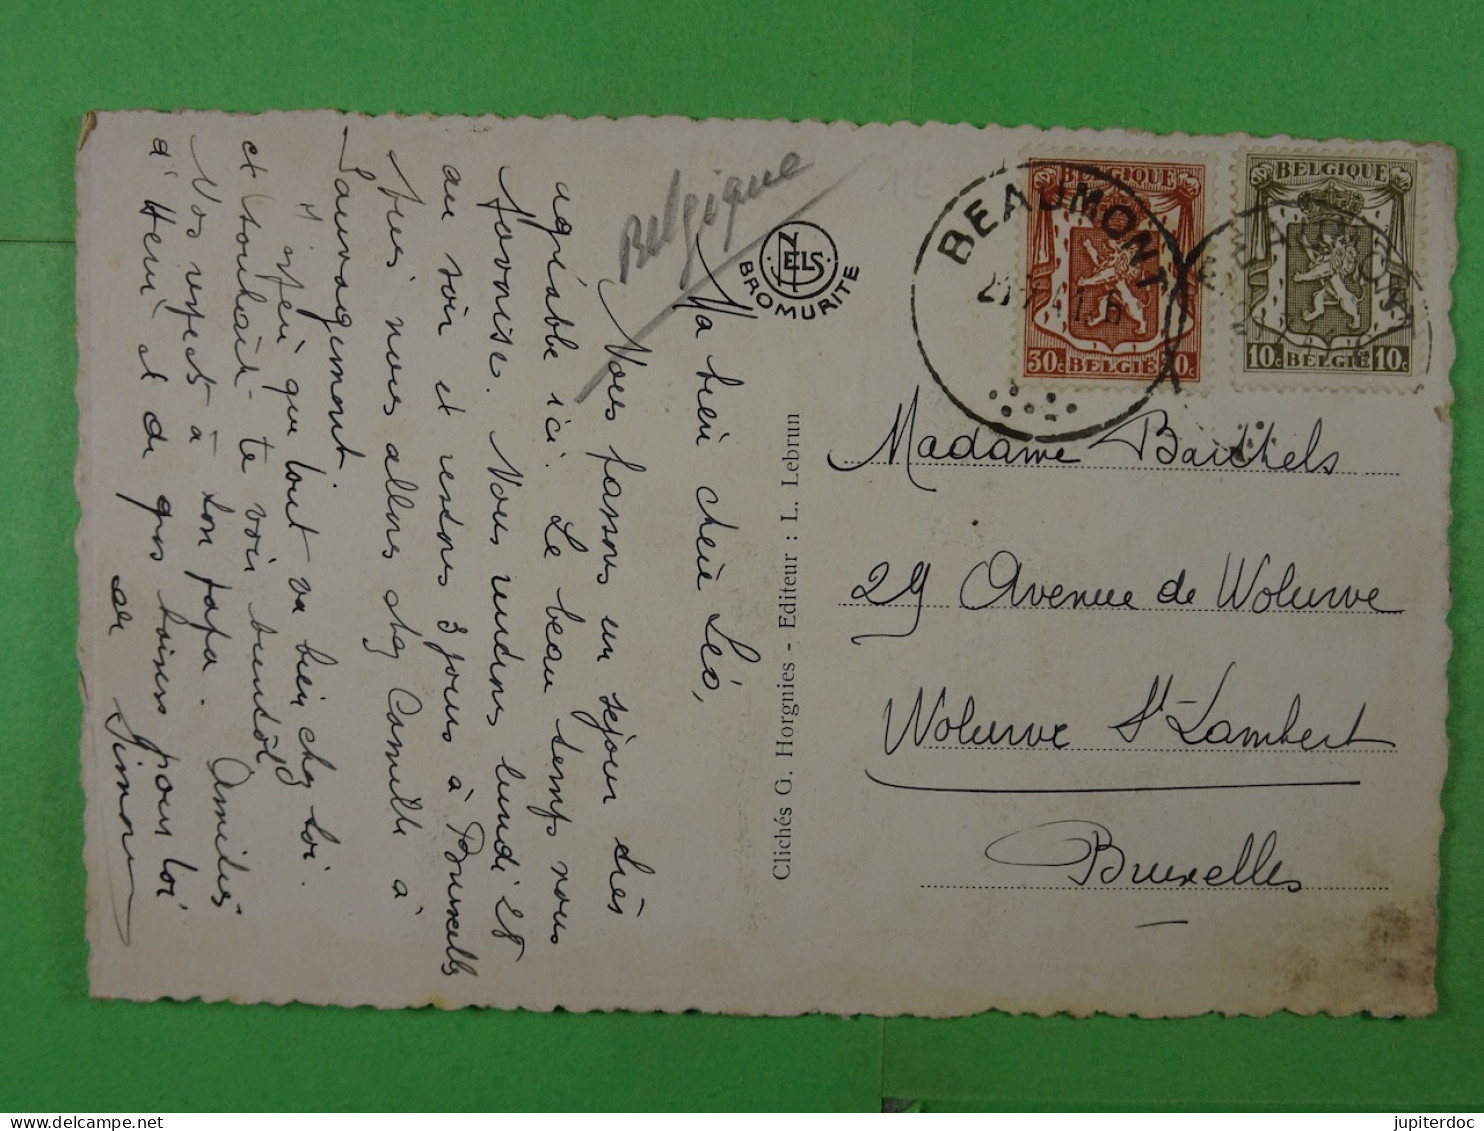 Ma bien chère Léo,
Nous passons un séjour très
agréable ici. Le beau temps nous
favorise. Nous rentrons lundi 28
au soir et restons 3 jours à Bruxelles
puis nous allons chez Camille à
Sauvagemont.
J'espère que tout va bien chez toi.
et souhaite te voir bientôt.
Amitiés
Nos respects à ton papa.
d'Henri et de gros baisers pour toi
de Simone
Belgique
NELS
BROMURITE
Clichés G. Horgnies - Editeur : L. Lebrun
BEAUMONT
BELGIQUE
30c BELGIË 30c
BELGIQUE
10c BELGIË 10c
Madame Barthels
29 Avenue de Woluwe
Woluwe St-Lambert
Bruxelles
jupiterdoc